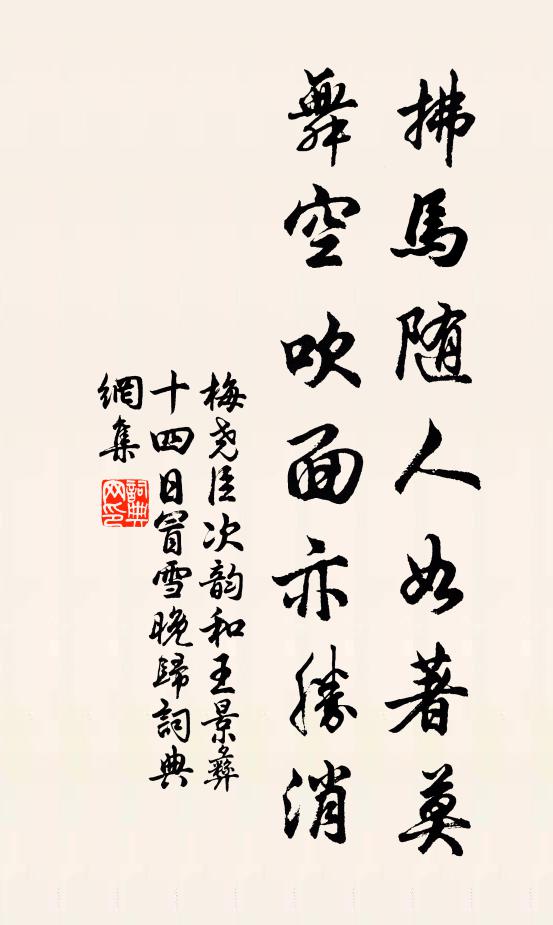 拂馬随人如著莫
舞空吹面亦勝消
梅尧臣次韵和王景彝
十四日冒雪晚歸詞典
網集
詞典
网印